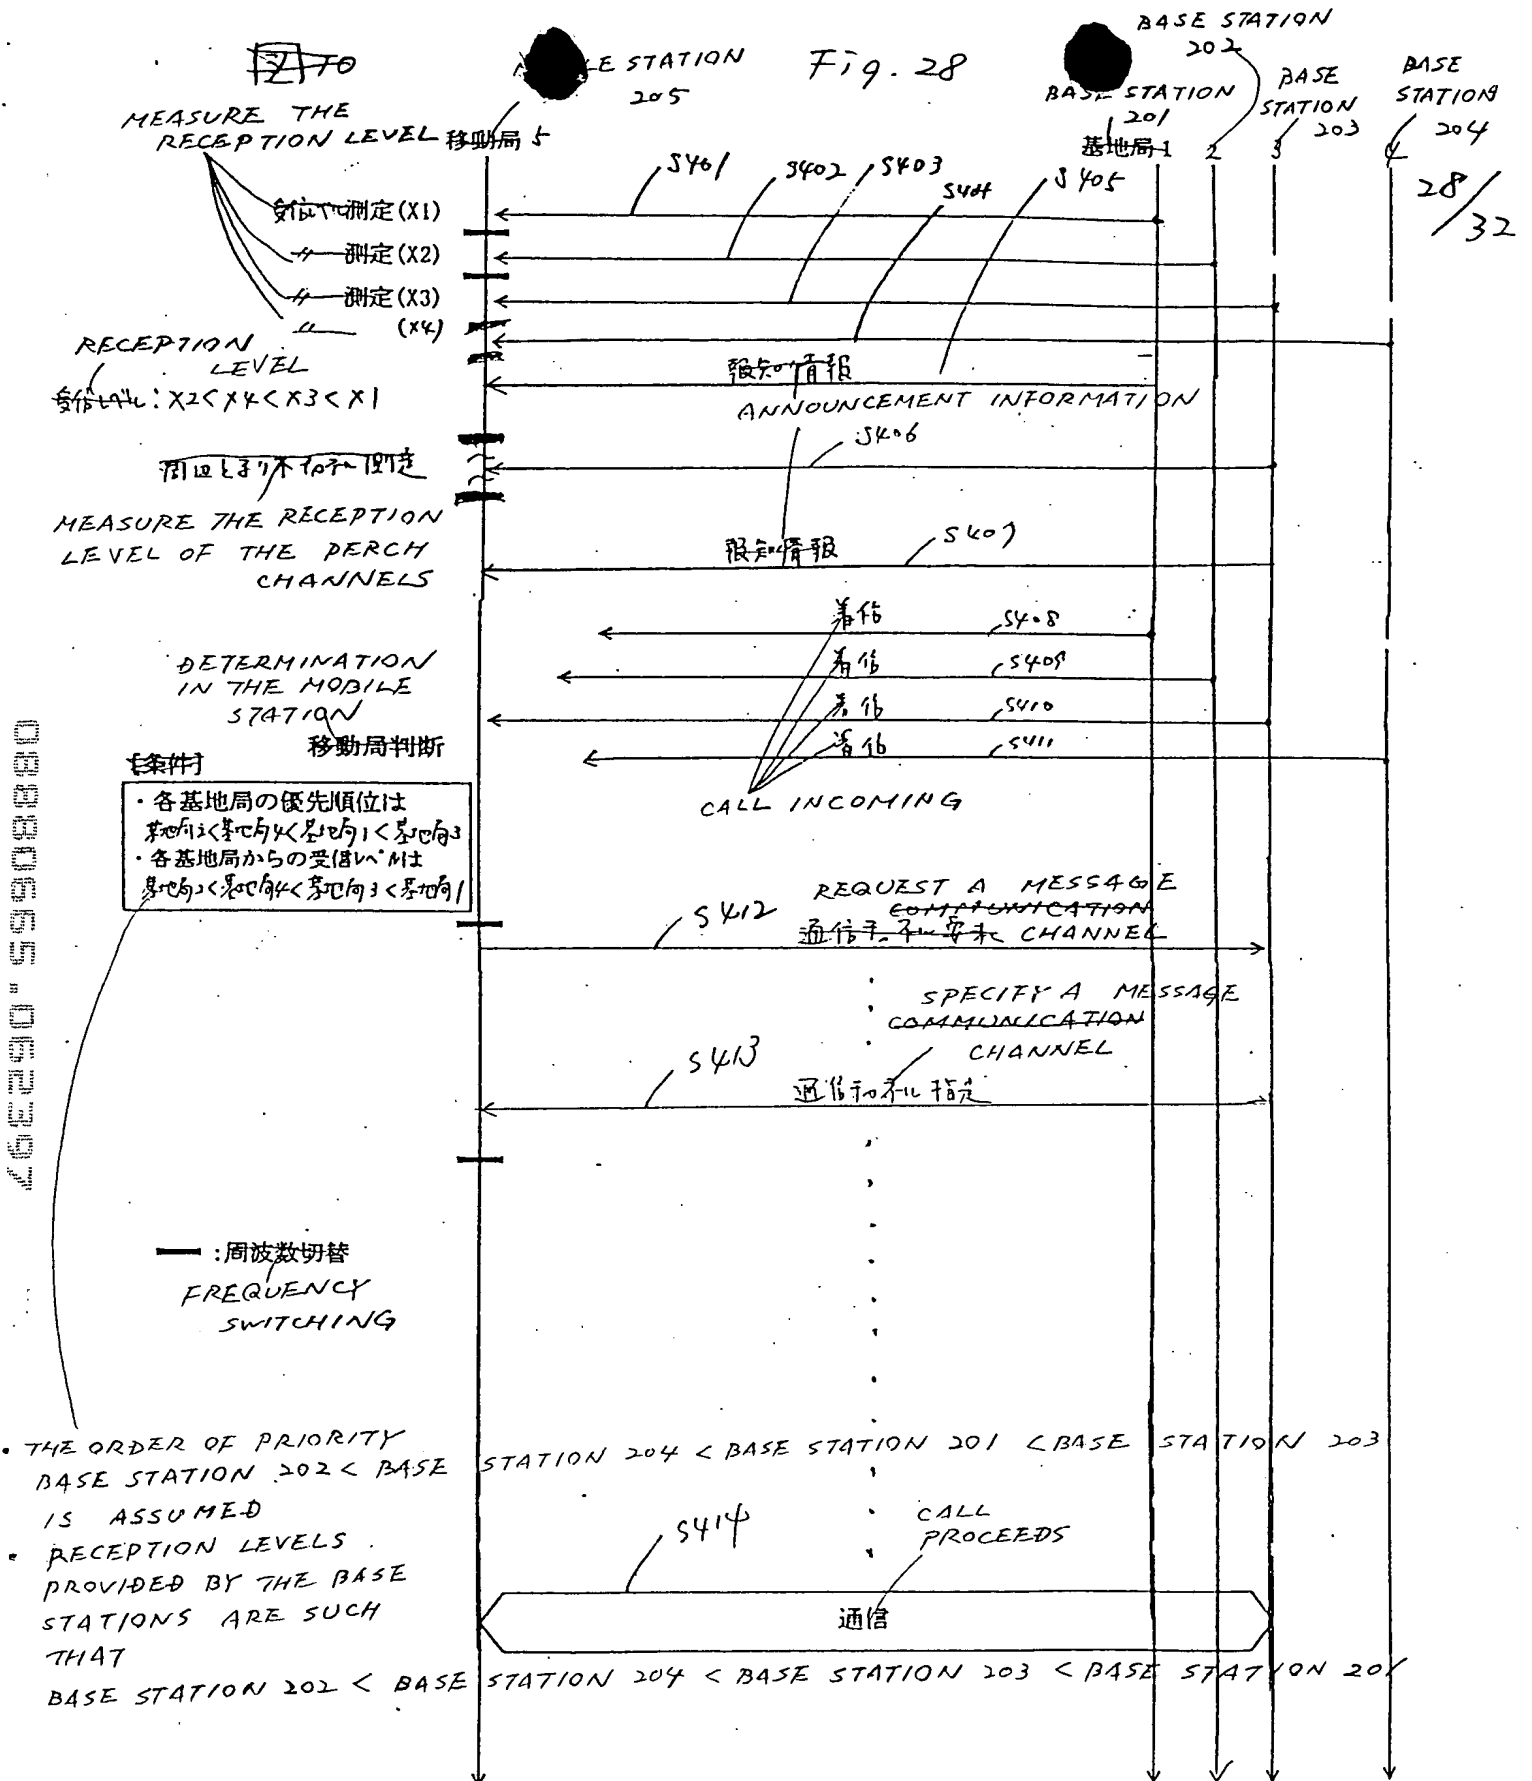 図10
E STATION
205
Fig. 28
BASE STATION
201
BASE STATION
202
BASE
STATION
203
BASE
STATION
204
28/32
MEASURE THE
RECEPTION LEVEL
移動局 5
基地局 1
2
3
4
S401
S402
S403
S404
S405
受信レベル測定(X1)
〃 測定(X2)
〃 測定(X3)
〃 (X4)
RECEPTION
LEVEL
受信レベル:X2<X4<X3<X1
報知情報
ANNOUNCEMENT INFORMATION
S406
周辺とまり木チャネル測定
MEASURE THE RECEPTION
LEVEL OF THE PERCH
CHANNELS
報知情報
S407
着信
S408
着信
S409
着信
S410
着信
S411
CALL INCOMING
DETERMINATION
IN THE MOBILE
STATION
移動局判断
[条件]
・各基地局の優先順位は
基地局2<基地局4<基地局1<基地局3
・各基地局からの受信レベルは
基地局2<基地局4<基地局3<基地局1
S412
REQUEST A MESSAGE
COMMUNICATION
通信チャネル要求 CHANNEL
SPECIFY A MESSAGE
COMMUNICATION
CHANNEL
S413
通信チャネル指定
:周波数切替
FREQUENCY
SWITCHING
• THE ORDER OF PRIORITY
BASE STATION 202 < BASE STATION 204 < BASE STATION 201 < BASE STATION 203
IS ASSUMED
• RECEPTION LEVELS
PROVIDED BY THE BASE
STATIONS ARE SUCH
THAT
BASE STATION 202 < BASE STATION 204 < BASE STATION 203 < BASE STATION 201
S414
CALL
PROCEEDS
通信
08880655.062397